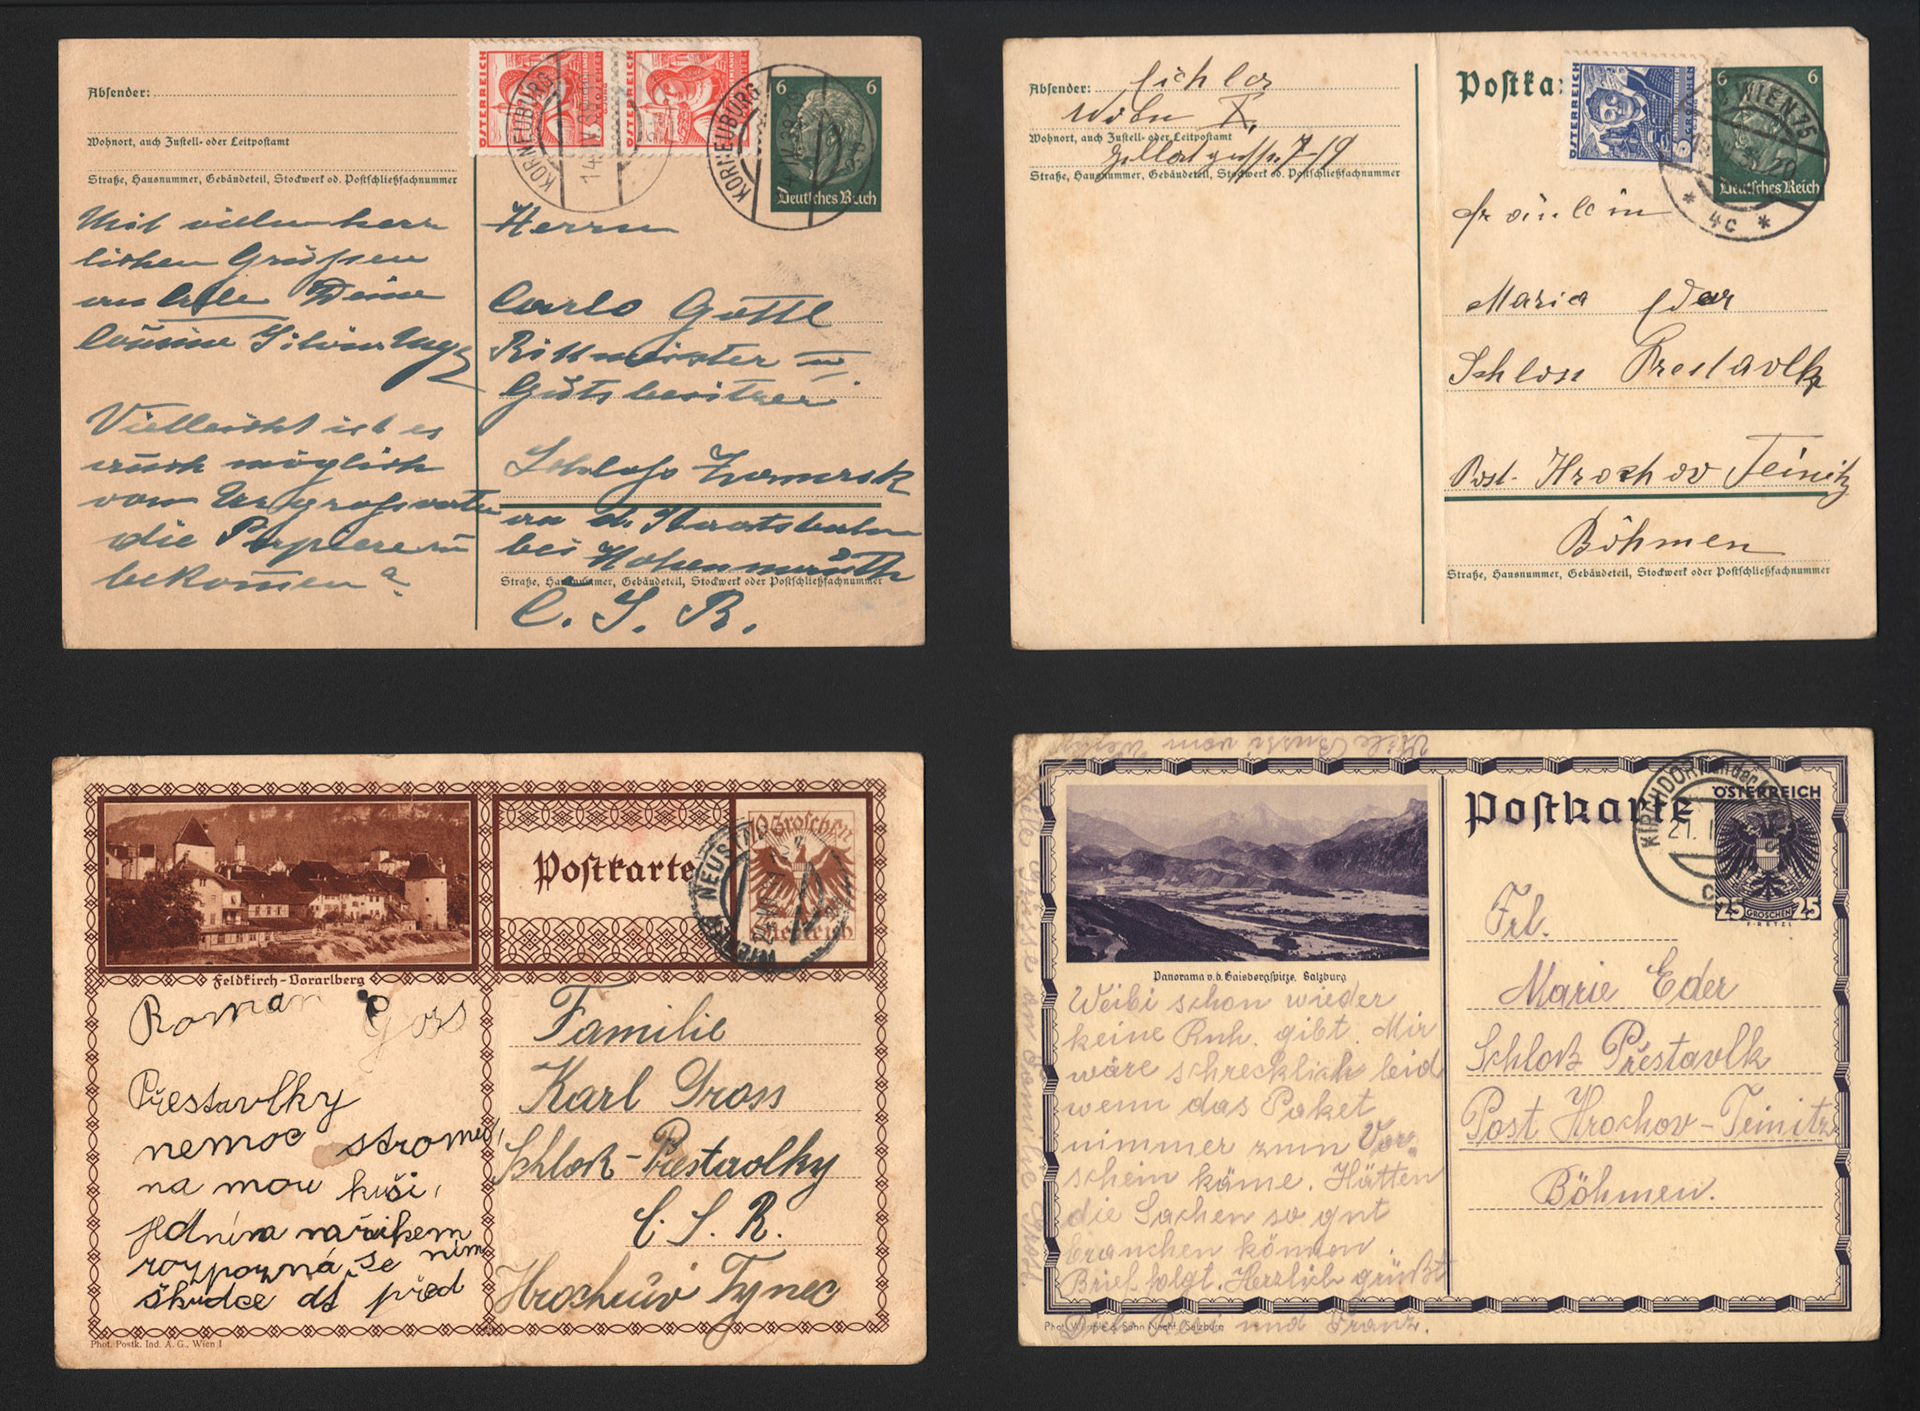 Absender:
Wohnort, auch Zustell- oder Leitpostamt
Straße, Hausnummer, Gebäudeteil, Stockwerk od. Postschließfachnummer
Mit vielen herz
lichen Grüßen
an Alle Deine
Cousine
Vielleicht ist es
auch möglich
vom Urgroßvater
die Papiere zu
bekommen?
ÖSTERREICH
ÖSTERREICH
KORNEUBURG
KORNEUBURG
6 6
Deutsches Reich
Herrn
Carlo Gottl
Rittmeister u.
Gutsbesitzer
Schloss Zamrsk
an d. Staatsbahn
bei Hohenmauth
Straße, Hausnummer, Gebäudeteil, Stockwerk oder Postschließfachnummer
C. S. R.
Absender:
Wien X.
Wohnort, auch Zustell- oder Leitpostamt
7/9
Straße, Hausnummer, Gebäudeteil, Stockwerk od. Postschließfachnummer
Postka
ÖSTERREICH
5 GROSCHEN
6 6
WIEN 75
20
Deutsches Reich
* 4c *
Fräulein
Maria Eder
Schloss Prestavlk
Post. Hrochov Teinitz
Böhmen
Straße, Hausnummer, Gebäudeteil, Stockwerk oder Postschließfachnummer
Feldkirch-Vorarlberg
Postkarte
10 Groschen
Österreich
WIENER NEUSTADT
Roman Gross
Přestavlky
nemoc stromu,
na mou kuši,
jednina nařikem
rozpozná, se ním
škudce dá před
Phot. Postk. Ind. A. G., Wien I
Familie
Karl Gross
Schloß-Prestavlky
Č. S. R.
Hrochův Tynec
Panorama v. d. Gaisbergspitze, Salzburg
Weibi schon wieder
keine Ruh. gibt. Mir
wäre schrecklich leid
wenn das Paket
nimmer zum Vor-
schein käme. Hätten
die Sachen so gut
brauchen können.
Brief folgt. Herzlich grüßt
und Franz.
Salzburg
Viele Grüsse an Familie Gross.
Viele Bussi vom
Postkarte
KIRCHDORF an der
21. I
C
ÖSTERREICH
25 GROSCHEN 25
F·RETZL
Frl.
Marie Eder
Schloß Přestavlk
Post Hrochov-Teinitz
Böhmen.